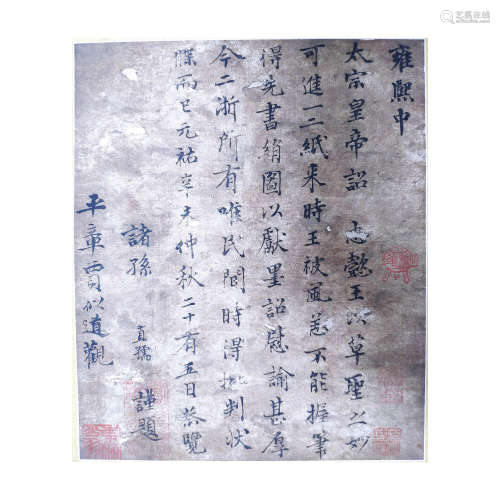 雍熙中
太宗皇帝詔 忠懿王以草聖之妙
可進一二紙來時王被風恙不能握筆
得先書絹圖以獻墨詔慰諭甚厚
今二浙所有唯民間時得批判狀
牒而已元祐辛未仲秋二十有五日恭覽
諸孫 直孺 謹題
平章賈似道觀
艺狐在线